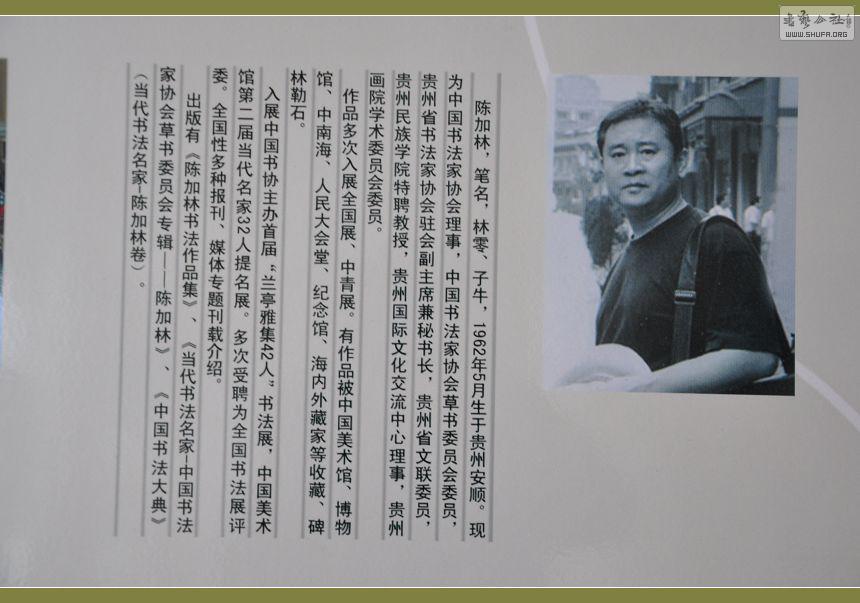 陈加林，笔名，林零、子牛，1962年5月生于贵州安顺。现
为中国书法家协会理事，中国书法家协会草书委员会委员，
贵州省书法家协会驻会副主席兼秘书长，贵州省文联委员，
贵州民族学院特聘教授，贵州国际文化交流中心理事，贵州
画院学术委员会委员。
作品多次入展全国展、中青展。有作品被中国美术馆、博物
馆、中南海、人民大会堂、纪念馆、海内外藏家等收藏、碑
林勒石。
入展中国书协主办首届“兰亭雅集42人”书法展，中国美术
馆第二届当代名家32人提名展。多次受聘为全国书法展评
委。全国性多种报刊、媒体专题刊载介绍。
出版有《陈加林书法作品集》、《当代书法名家—中国书法
家协会草书委员会专辑——陈加林》、《中国书法大典》
（当代书法名家—陈加林卷）。
WWW.SHUFA.ORG